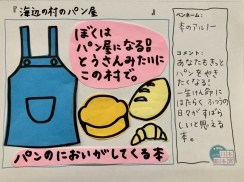 『海辺の村のパン屋』
ぼくは
パン屋になる！
とうさんみたいに
この村で。
パンのにおいがしてくる本
ペンネーム：
本のアルトー
コメント：
あなたもきっと
パンをやき
たくなる！
一生けん命に
はたらく、ふつうの
日々がすばら
しいと思える
本。